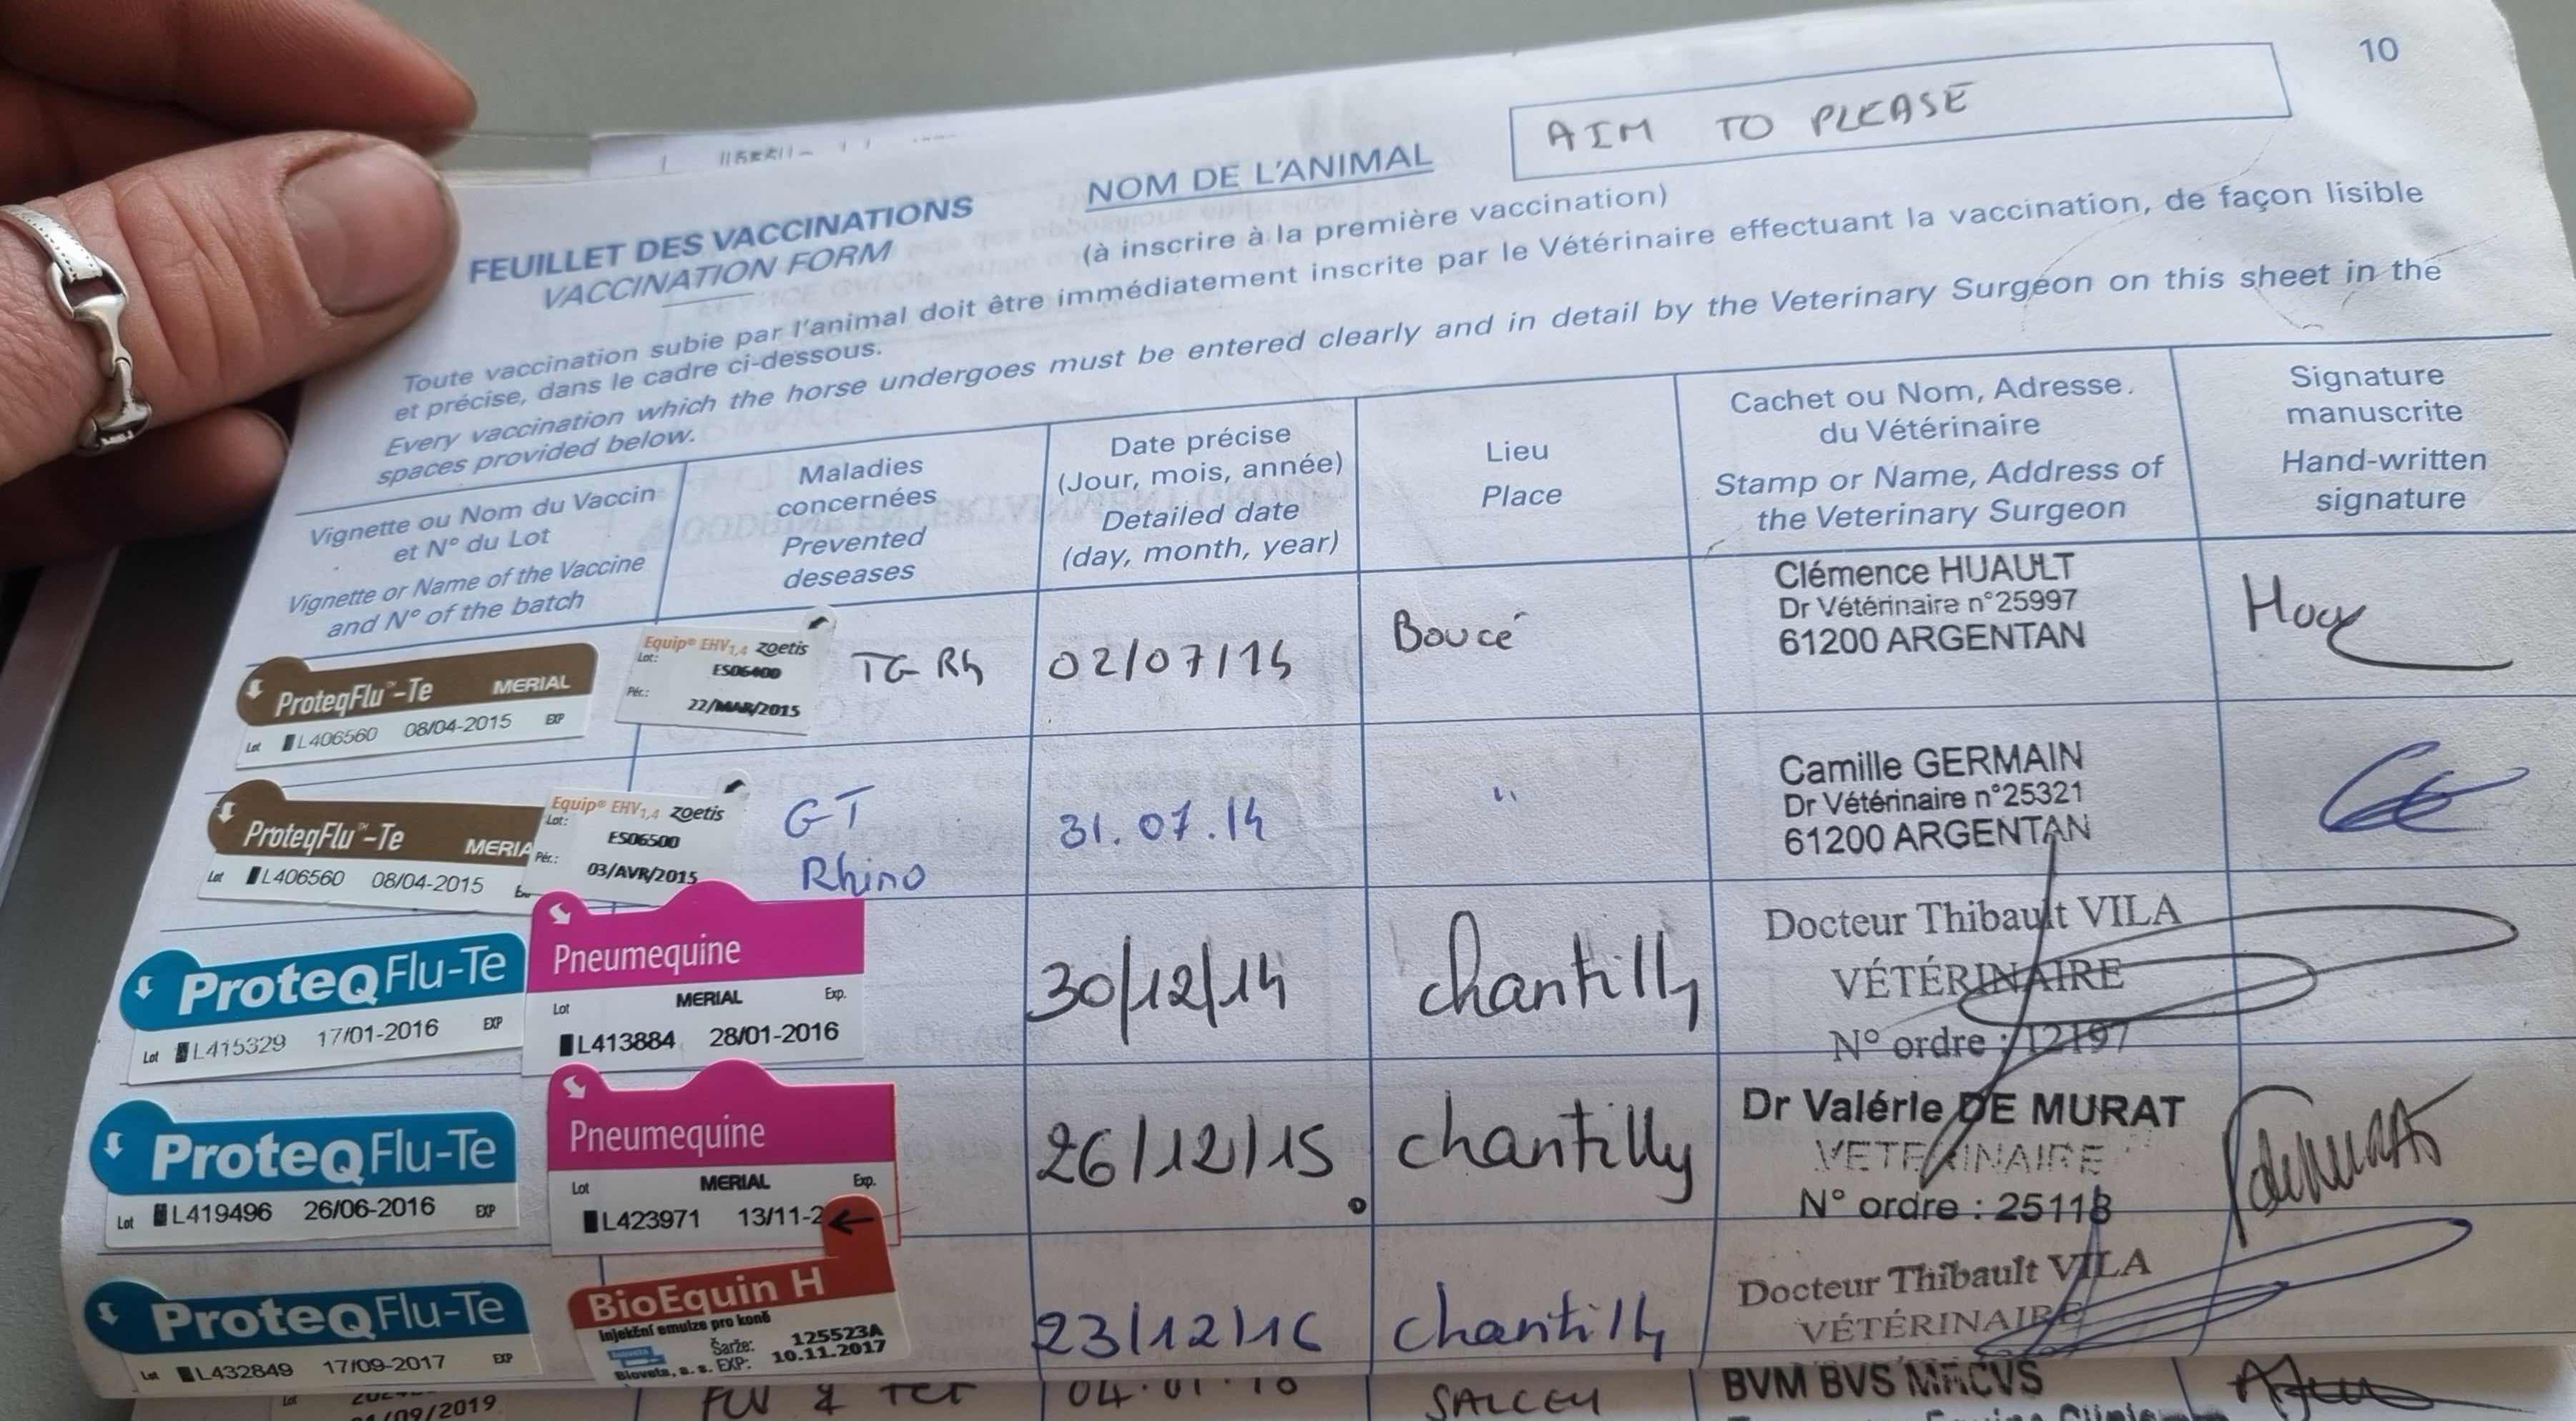 10
AIM TO PLEASE
FEUILLET DES VACCINATIONS
VACCINATION FORM
NOM DE L'ANIMAL
(à inscrire à la première vaccination)
Toute vaccination subie par l'animal doit être immédiatement inscrite par le Vétérinaire effectuant la vaccination, de façon lisible
et précise, dans le cadre ci-dessous.
Every vaccination which the horse undergoes must be entered clearly and in detail by the Veterinary Surgeon on this sheet in the
spaces provided below.
Vignette ou Nom du Vaccin
et N° du Lot
Vignette or Name of the Vaccine
and N° of the batch
Maladies
concernées
Prevented
deseases
Date précise
(Jour, mois, année)
Detailed date
(day, month, year)
Lieu
Place
Cachet ou Nom, Adresse.
du Vétérinaire
Stamp or Name, Address of
the Veterinary Surgeon
Signature
manuscrite
Hand-written
signature
ProteqFlu™-Te MERIAL
Lot L406560 08/04-2015 EXP
Equip® EHV1,4 zoetis
Lot:
ES06400
Pér.:
22/MAR/2015
TG Rh
02/07/14
Boucé
Clémence HUAULT
Dr Vétérinaire n°25997
61200 ARGENTAN
ProteqFlu™-Te MERIA
Lot L406560 08/04-2015
Equip® EHV1,4 zoetis
Lot:
ES06500
Pér.:
03/AVR/2015
GT
Rhino
31.07.14
"
Camille GERMAIN
Dr Vétérinaire n°25321
61200 ARGENTAN
ProteqFlu-Te
Lot L415329 17/01-2016 EXP
Pneumequine
Lot MERIAL Exp.
L413884 28/01-2016
30/12/14
Chantilly
Docteur Thibault VILA
VÉTÉRINAIRE
N° ordre : 12197
ProteqFlu-Te
Lot L419496 26/06-2016 EXP
Pneumequine
Lot MERIAL Exp.
L423971 13/11-2
26/12/15
Chantilly
Dr Valérie DE MURAT
VETERINAIRE
N° ordre : 25118
deMurat
ProteqFlu-Te
Lot L432849 17/09-2017 EXP
BioEquin H
Injekční emulze pro koně
Šarže: 125523A
Bioveta, a. s. EXP: 10.11.2017
23/12/16
Chantilly
Docteur Thibault VILA
VÉTÉRINAIRE
Lot
/09/2019
04.01.18
BVM BVS MRCVS